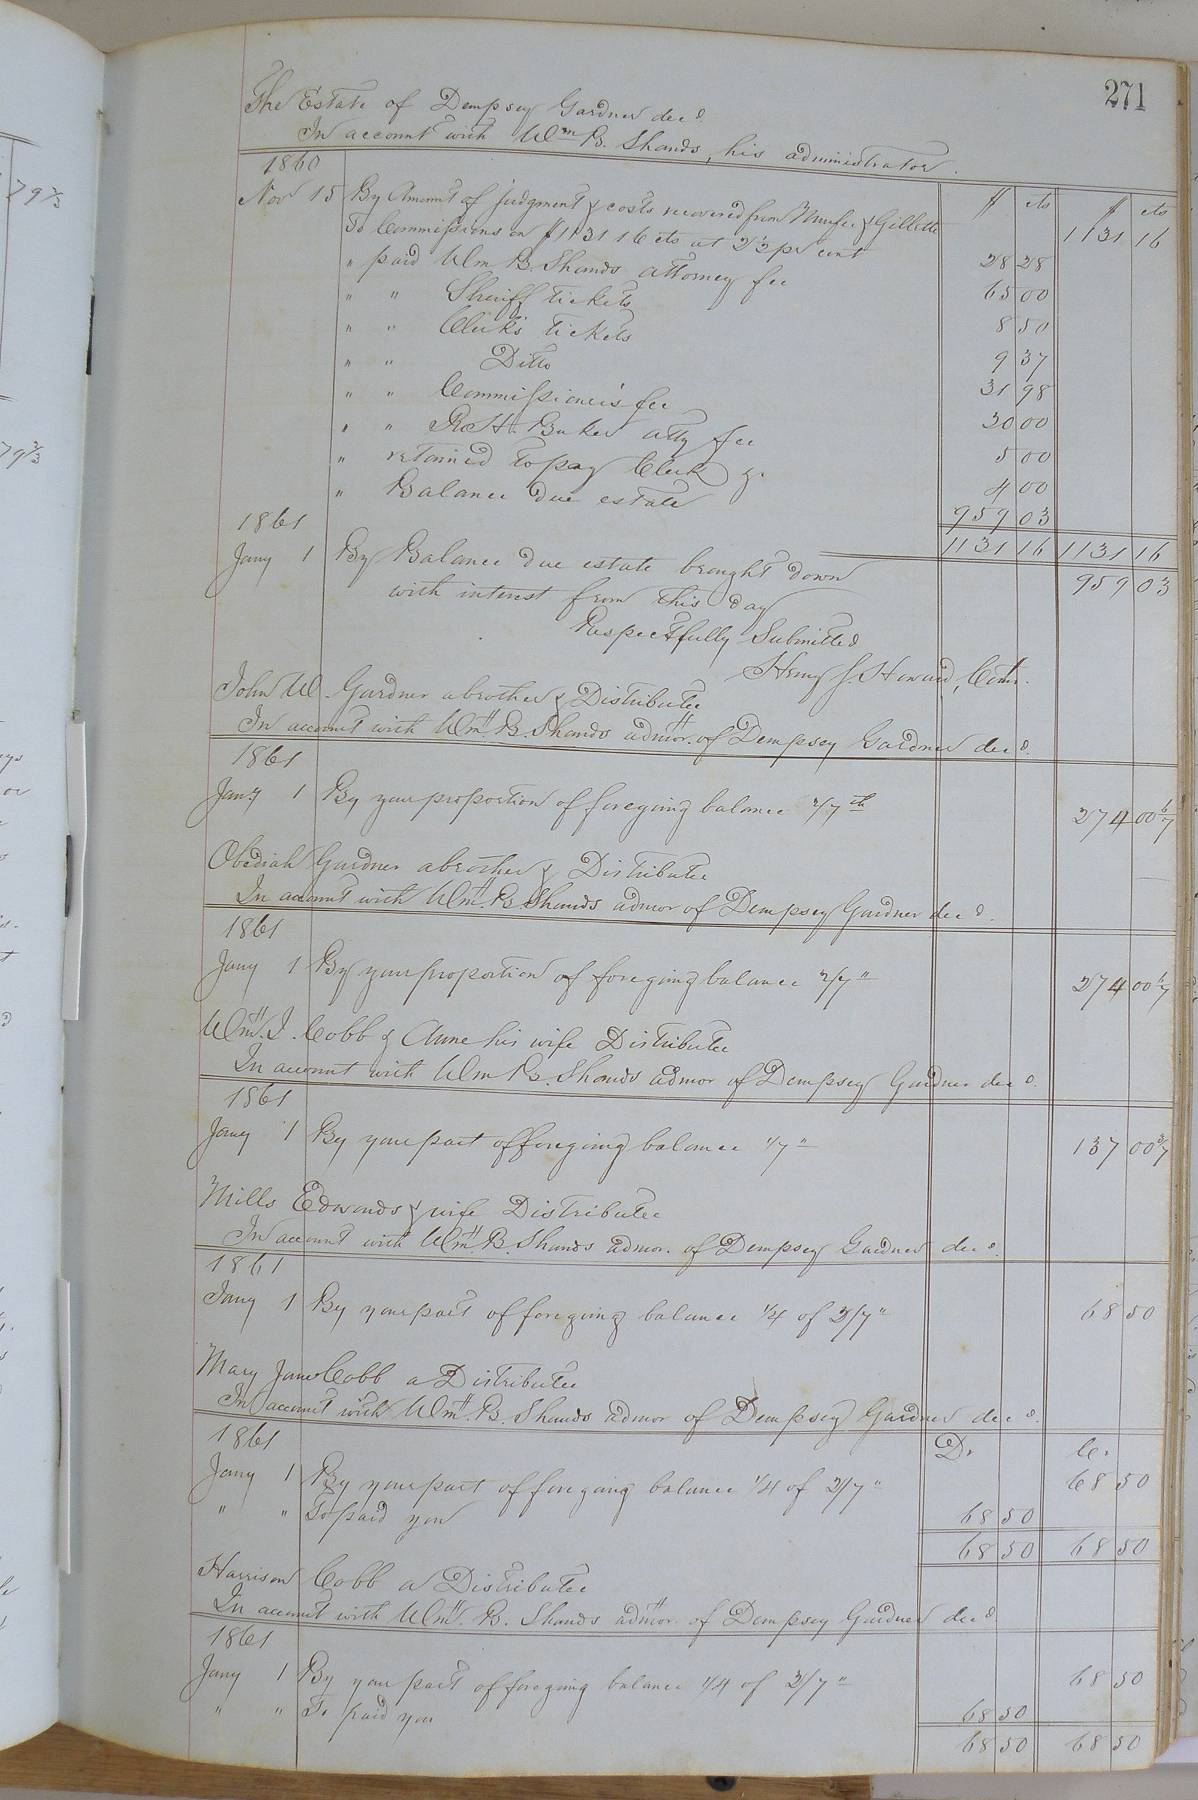 271
The Estate of Dempsey Gardner decd
In account with Wm B. Shands, his administrator.
1860 $ cts $ cts
Nov 15 By Amount of judgment & costs recovered from & Gillette 1131 16
To Commissions on $1131 16 cts at 2½ pr cent 28 28
" paid Wm B. Shands attorney fee 65 00
" " Sheriff tickets 8 50
" " Clerk's tickets 9 37
" " Ditto 31 98
" " Commissioner's fee 20 00
" " R. H. Baker atty fee 5 00
" retained to pay Clerk &c 4 00
" Balance due estate 959 03
1131 16 1131 16
1861
Jany 1 By Balance due estate brought down 959 03
with interest from this day
Respectfully Submitted
Henry J. Howard, Comr.
John W. Gardner a brother & Distributee
In account with Wm. B. Shands admor. of Dempsey Gardner decd.
1861
Jany 1 By your proportion of foregoing balance 2/7th 274 00 6/7
Obediah Gardner a brother & Distributee
In account with Wm. B. Shands admor of Dempsey Gardner decd.
1861
Jany 1 By your proportion of foregoing balance 2/7" 274 00 6/7
Wm. J. Cobb & Anne his wife Distributee
In account with Wm B. Shands admor of Dempsey Gardner decd.
1861
Jany 1 By your part of foregoing balance 1/7" 137 00 3/7
Mills Edwards & wife Distributee
In account with Wm. B. Shands admor. of Dempsey Gardner decd.
1861
Jany 1 By your part of foregoing balance 1/4 of 2/7" 68 50
Mary Jane Cobb a Distributee
In account with Wm. B. Shands admor of Dempsey Gardner decd.
1861 D. C.
Jany 1 By your part of foregoing balance 1/4 of 2/7" 68 50
" " To paid you 68 50
68 50 68 50
Harrison Cobb a Distributee
In account with Wm. B. Shands admor. of Dempsey Gardner decd.
1861
Jany 1 By your part of foregoing balance 1/4 of 2/7" 68 50
" " To paid you 68 50
68 50 68 50